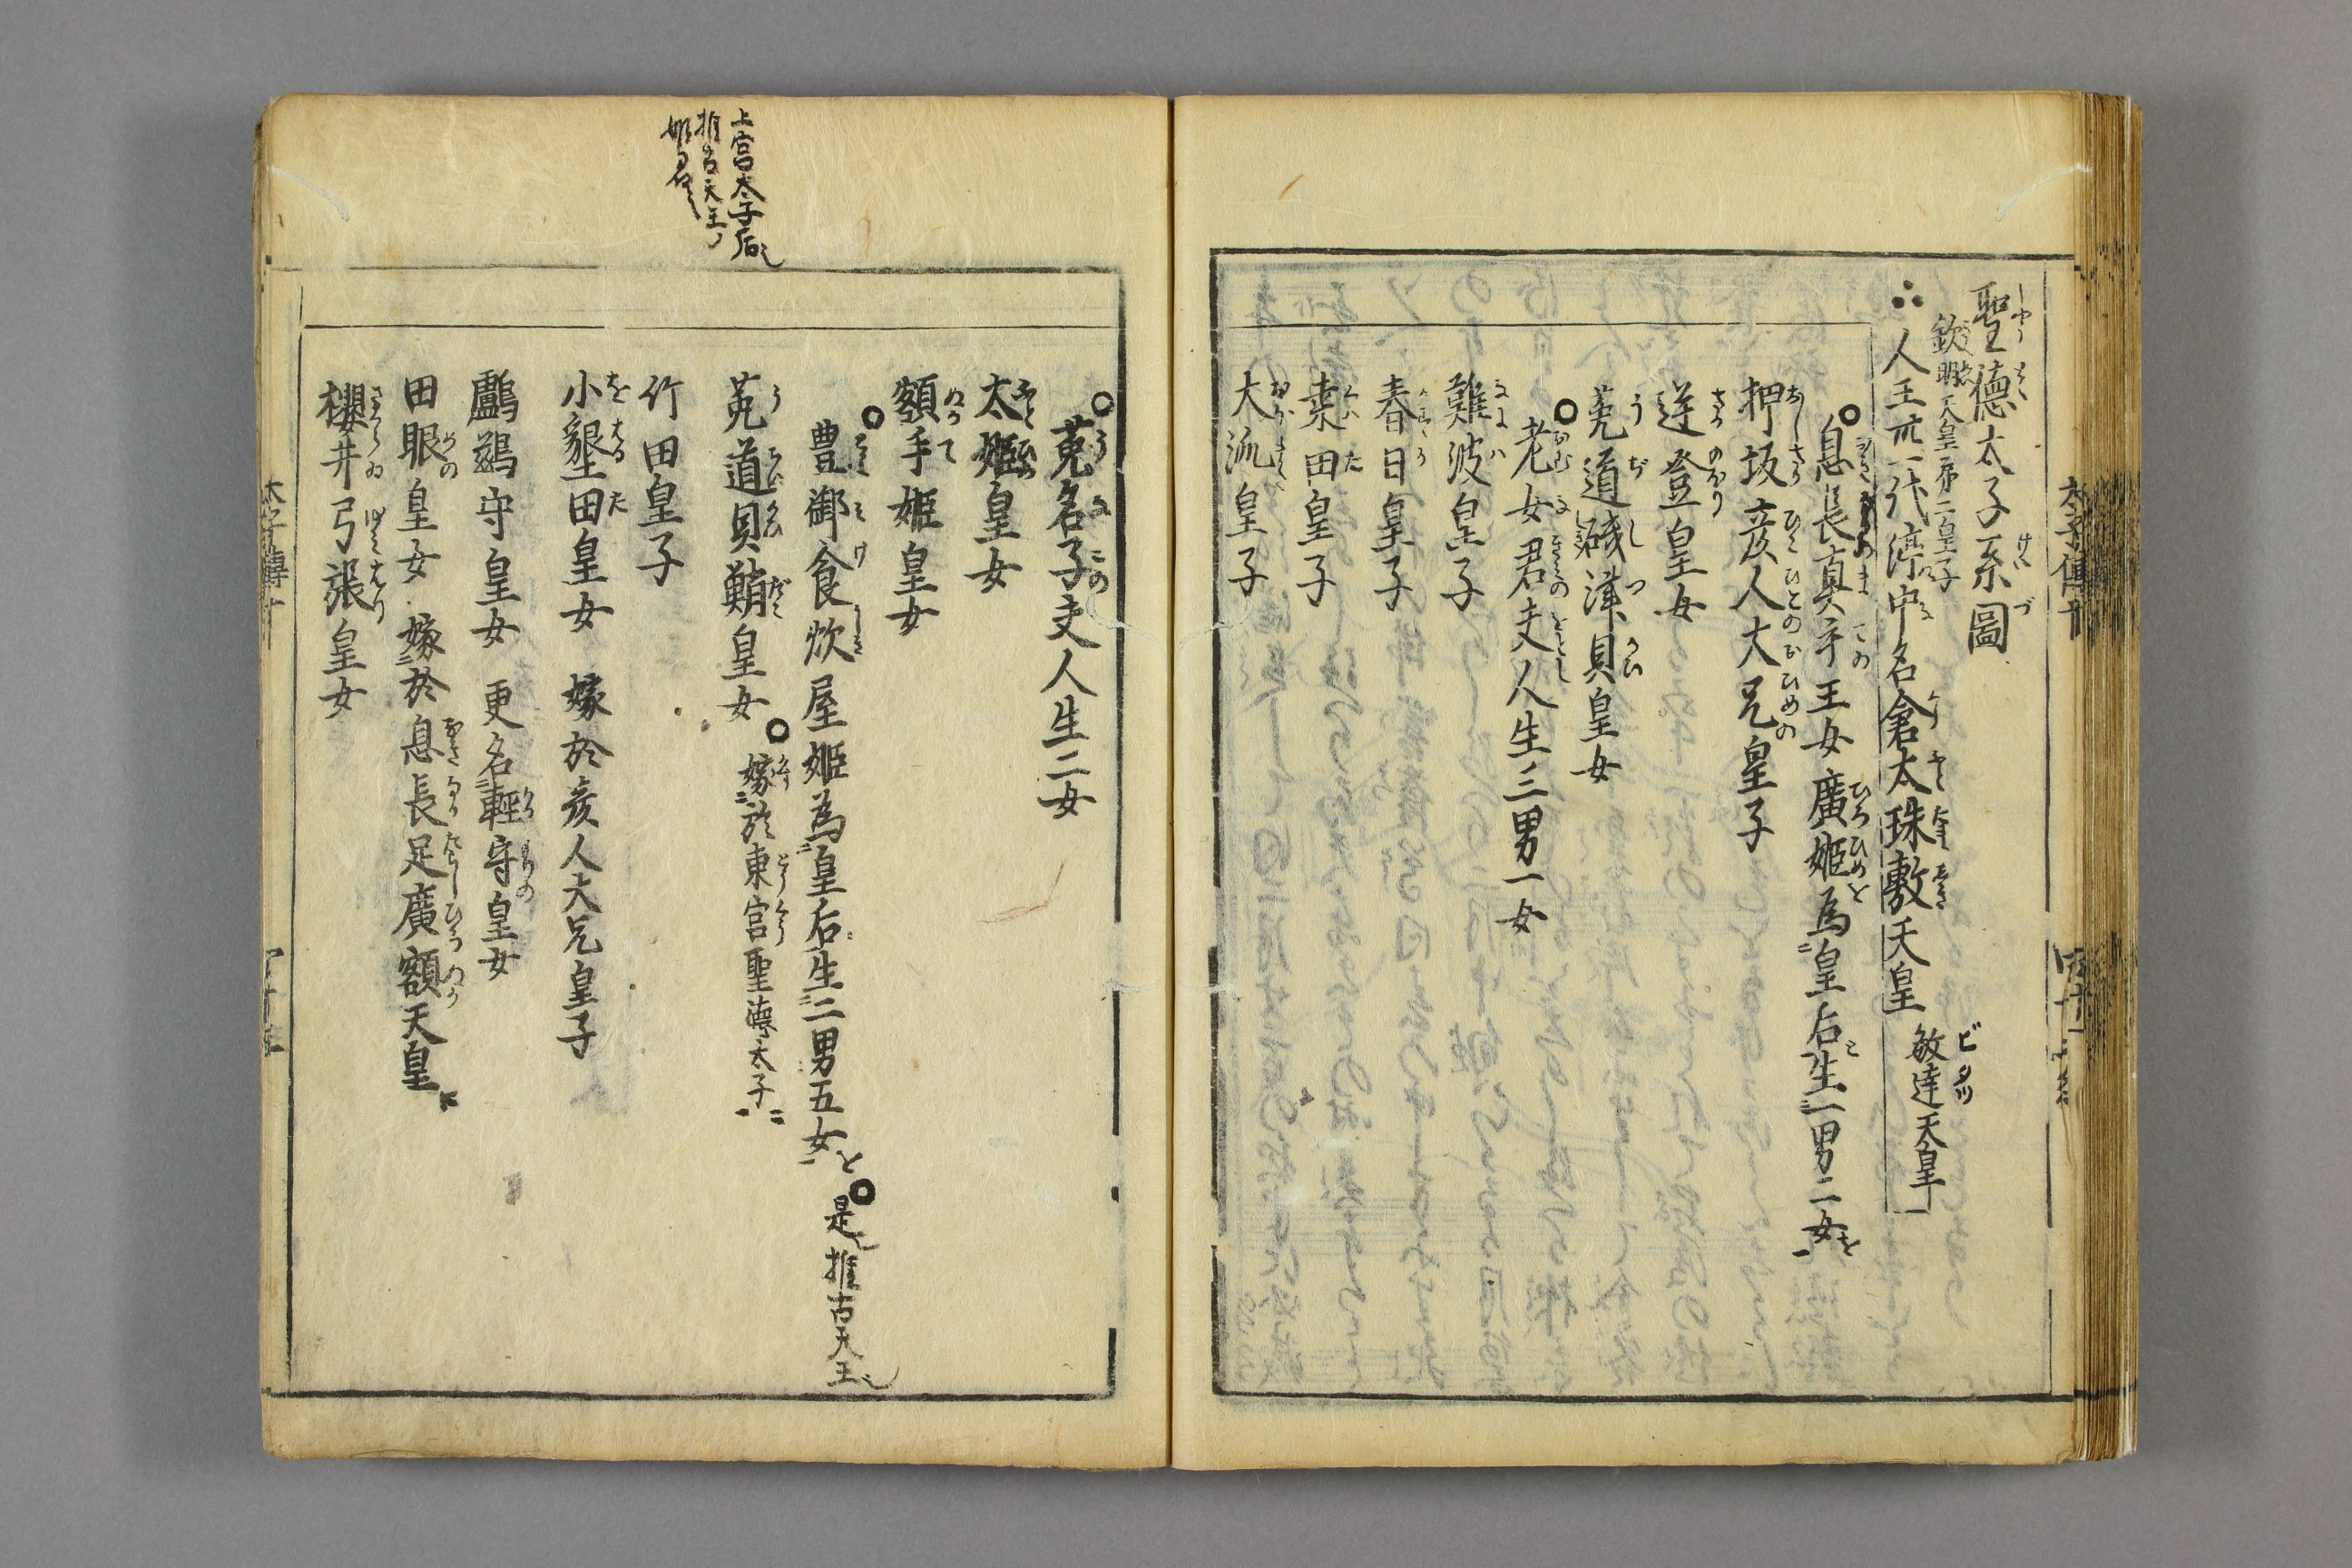 聖德太子系圖
欽明天皇第二皇子
人王卅一代渟中名倉太珠敷天皇
敏達天皇
ビタツ
息長真手王女廣姫為皇后生一男二女
押坂彦人大兄皇子
逆登皇女
菟道磯津貝皇女
老女君夫人生三男一女
難波皇子
春日皇子
桒田皇子
大派皇子
太子傳十
上宮太子后
推古天王ノ
菟名子夫人生二女
太姫皇女
額手姫皇女
豊御食炊屋姫為皇后生二男五女
是推古天王
菟道貝鮹皇女
嫁於東宮聖德太子
竹田皇子
小墾田皇女 嫁於彦人大兄皇子
鸕鷀守皇女 更名輕守皇女
田眼皇女 嫁於息長足廣額天皇
櫻井弓張皇女